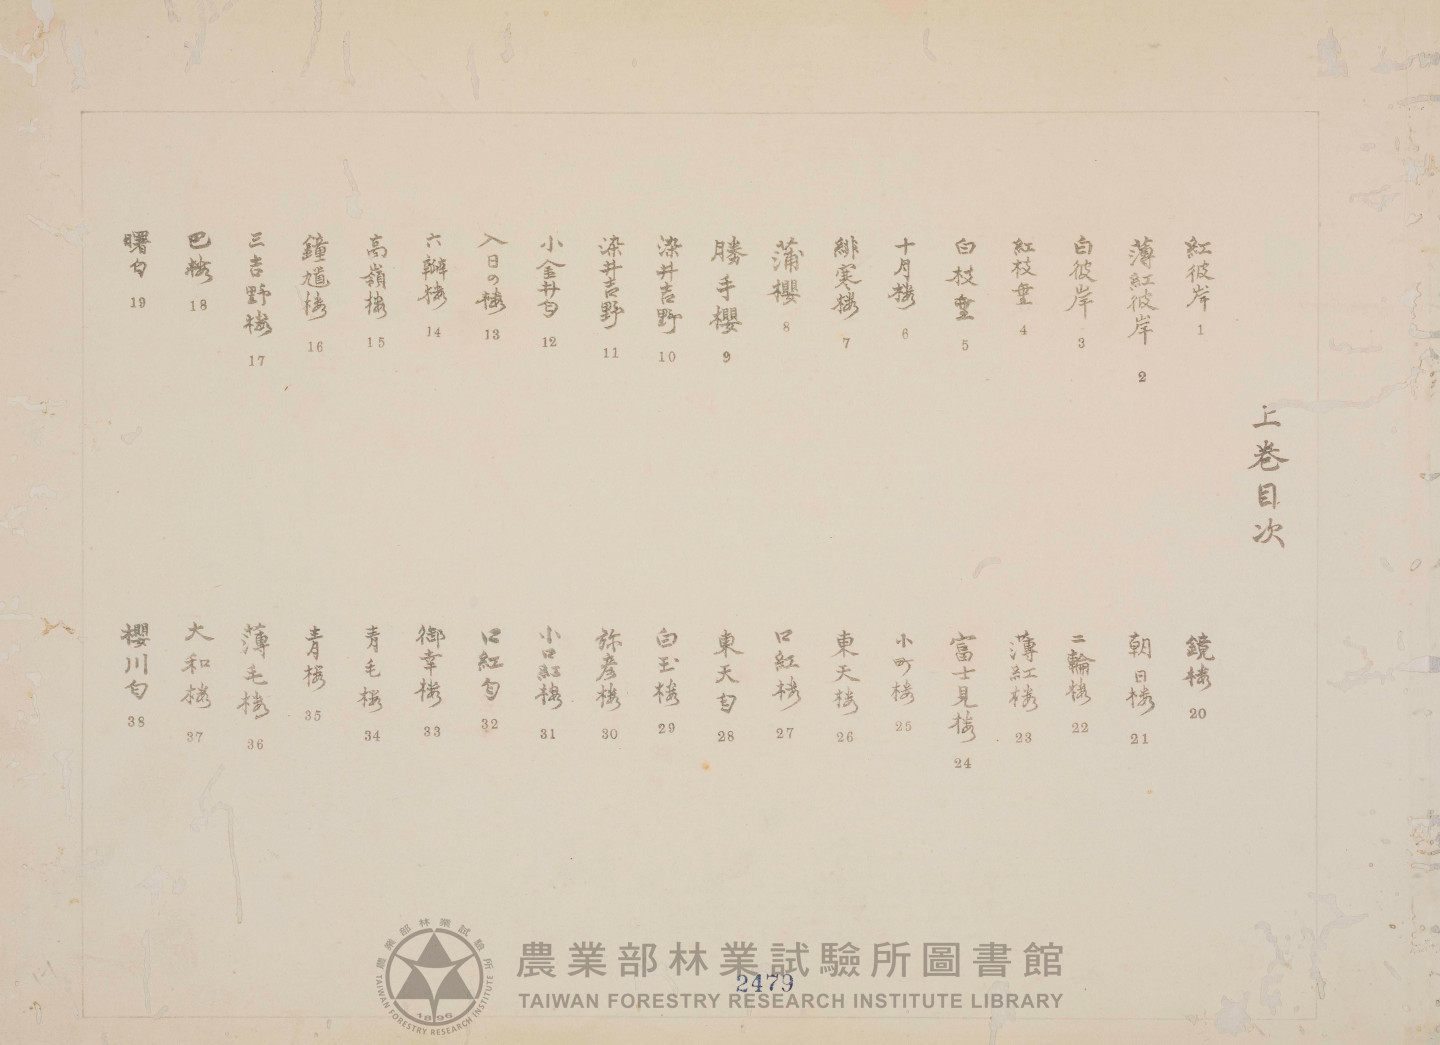 上巻目次
紅彼岸 1
薄紅彼岸 2
白彼岸 3
紅枝垂 4
白枝垂 5
十月桜 6
緋寒桜 7
蒲櫻 8
勝手櫻 9
染井吉野 10
染井吉野 11
小金井匂 12
入日の桜 13
六瓣桜 14
高嶺桜 15
鐘馗桜 16
三吉野桜 17
巴桜 18
曙匂 19
鏡桜 20
朝日桜 21
二輪桜 22
薄紅桜 23
富士見桜 24
小町桜 25
東天桜 26
口紅桜 27
東天匂 28
白玉桜 29
弥彦桜 30
小口紅桜 31
口紅匂 32
御幸桜 33
青毛桜 34
青桜 35
薄毛桜 36
大和桜 37
櫻川匂 38
農業部林業試驗所
TAIWAN FORESTRY RESEARCH INSTITUTE
1896
農業部林業試驗所圖書館
2479
TAIWAN FORESTRY RESEARCH INSTITUTE LIBRARY